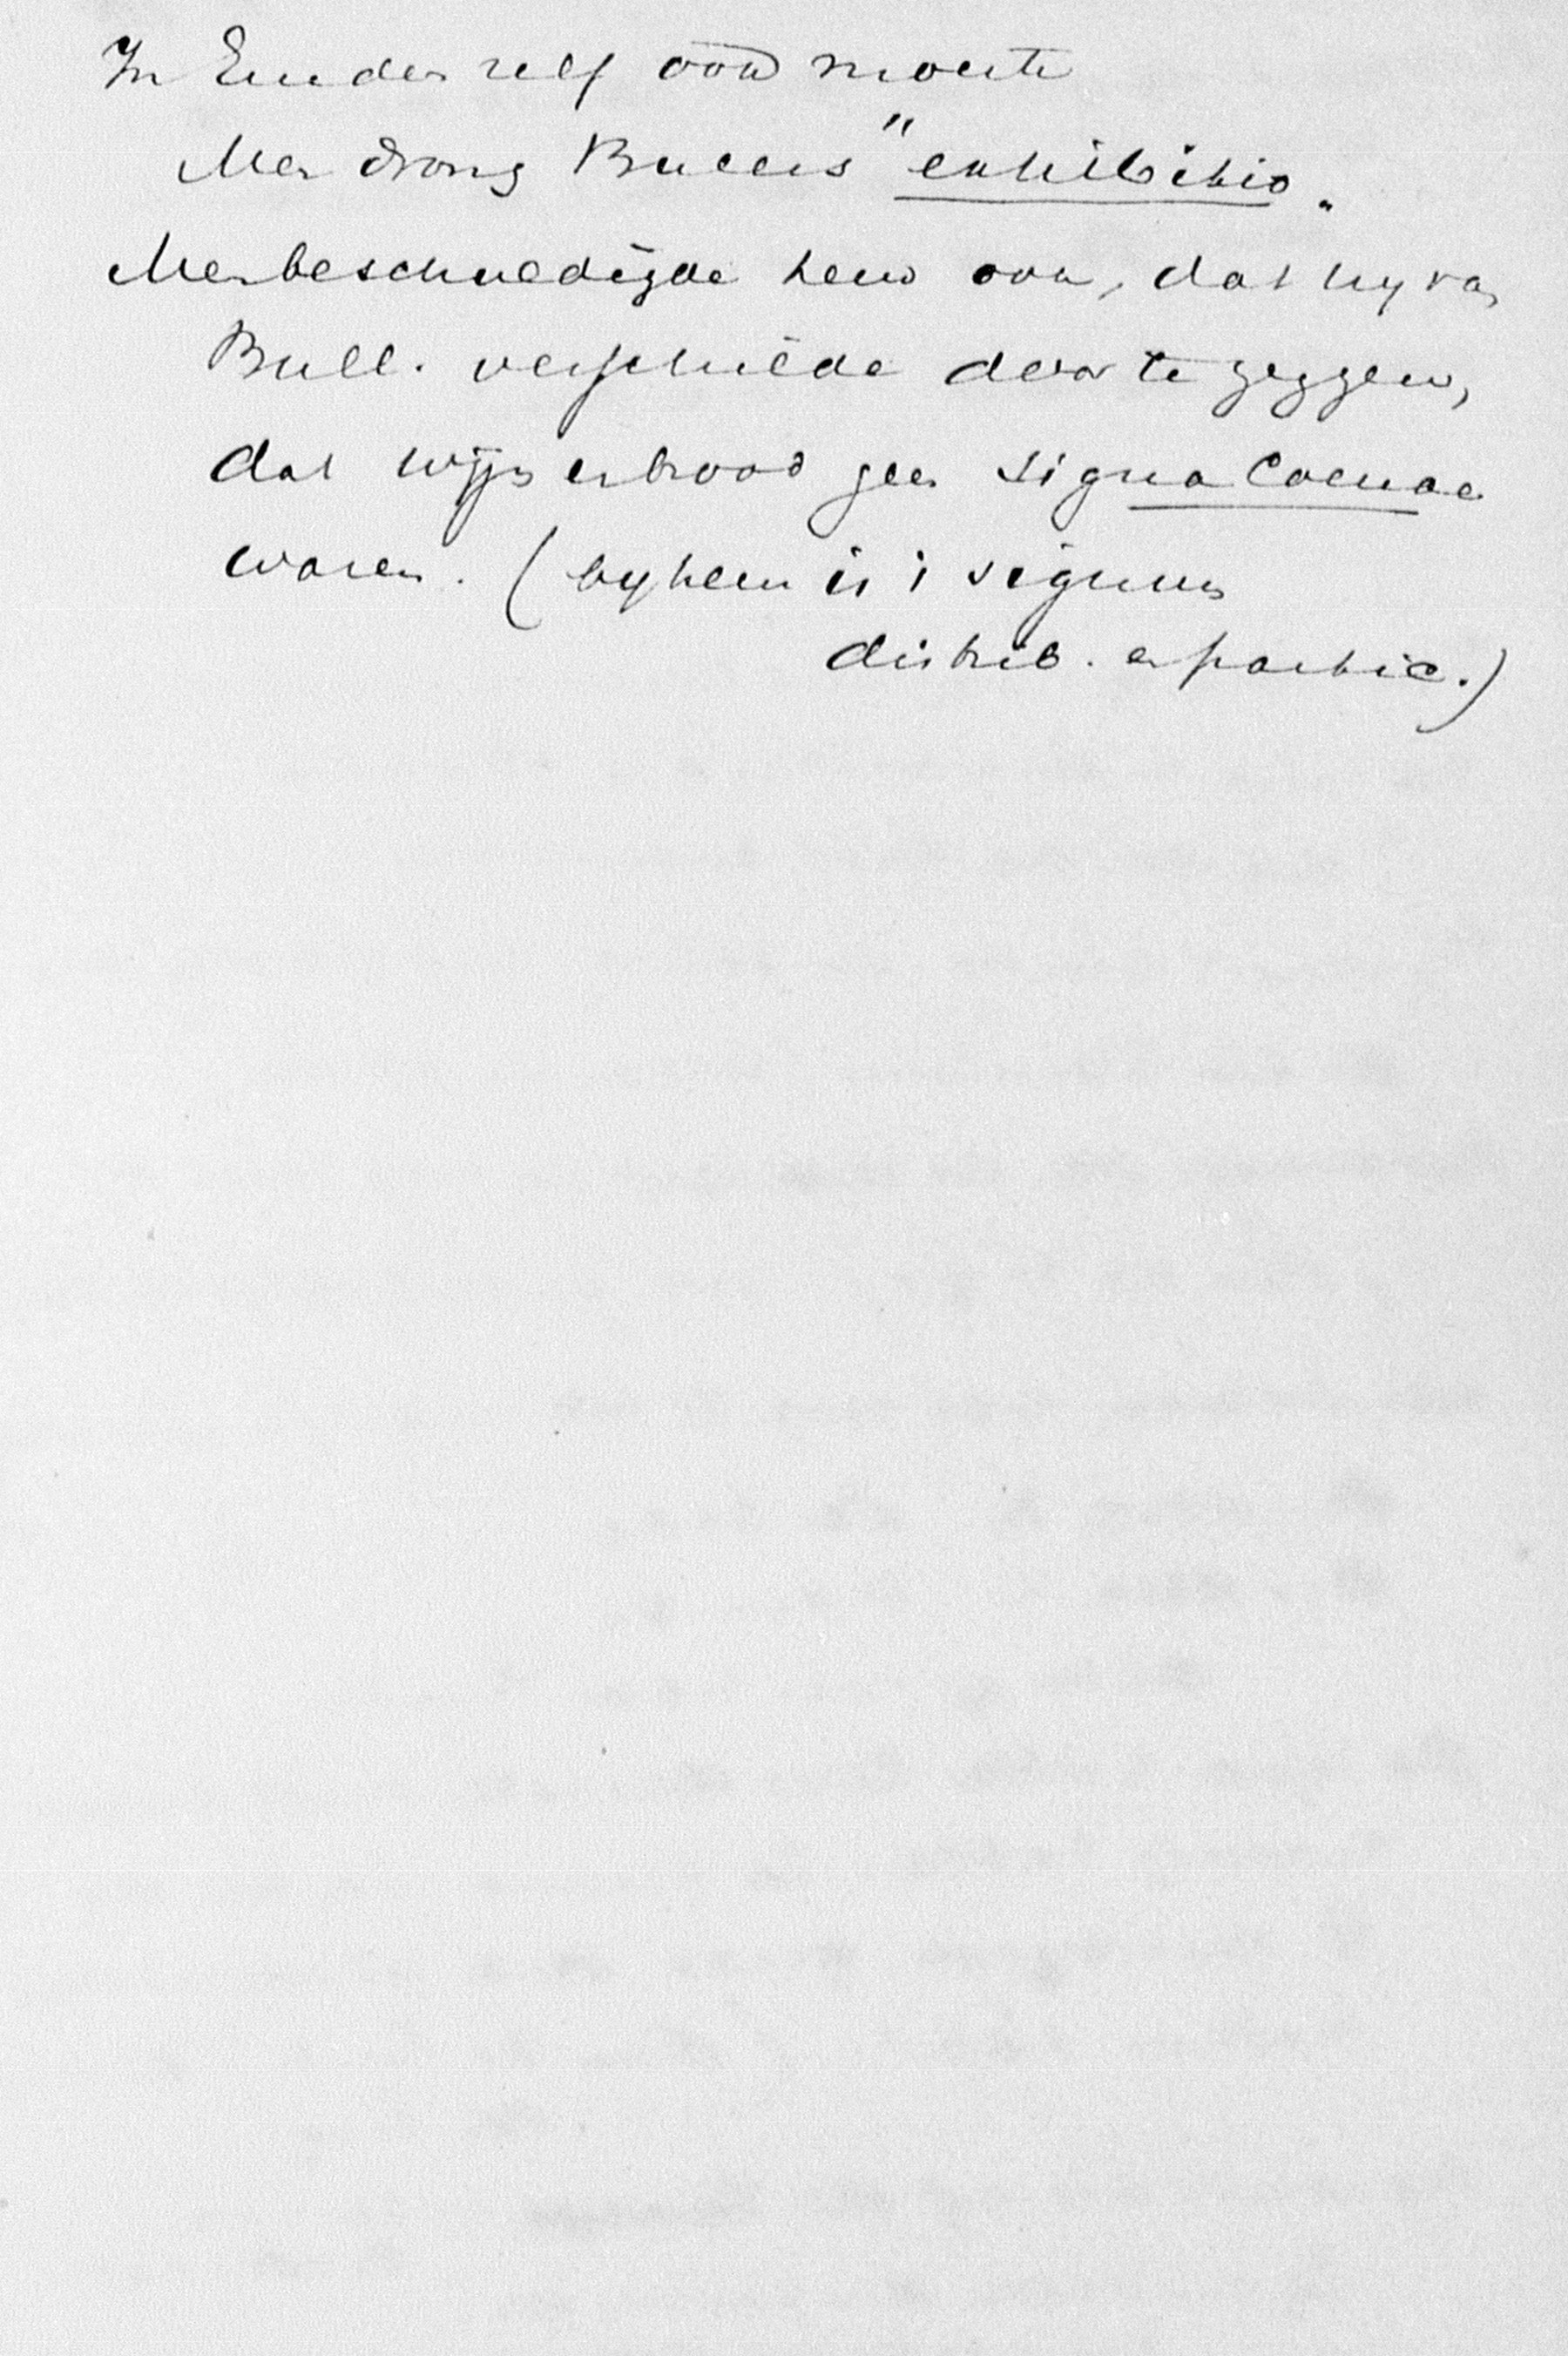 In Emden zelf ook moeite
Men drong Bucers "exhibitio"
Men beschuldigde hem ook, dat hy van
Bull. verschilde door te zeggen,
dat wijn en brood geen signa Coenae
waren. (by hem is 't signum
distrib. en partic.)